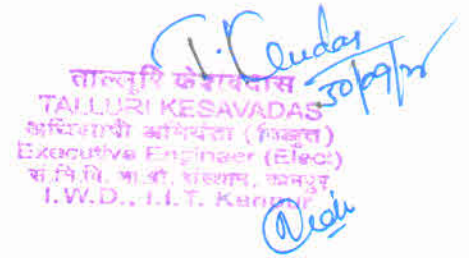 30/09/22
ताल्लूरि केशवदास
TALLURI KESAVADAS
अधिशाषी अभियंता (विद्युत)
Executive Engineer (Elect)
सं.नि.वि. भा.प्रौ. संस्थान, कानपुर
I.W.D., I.I.T. Kanpur